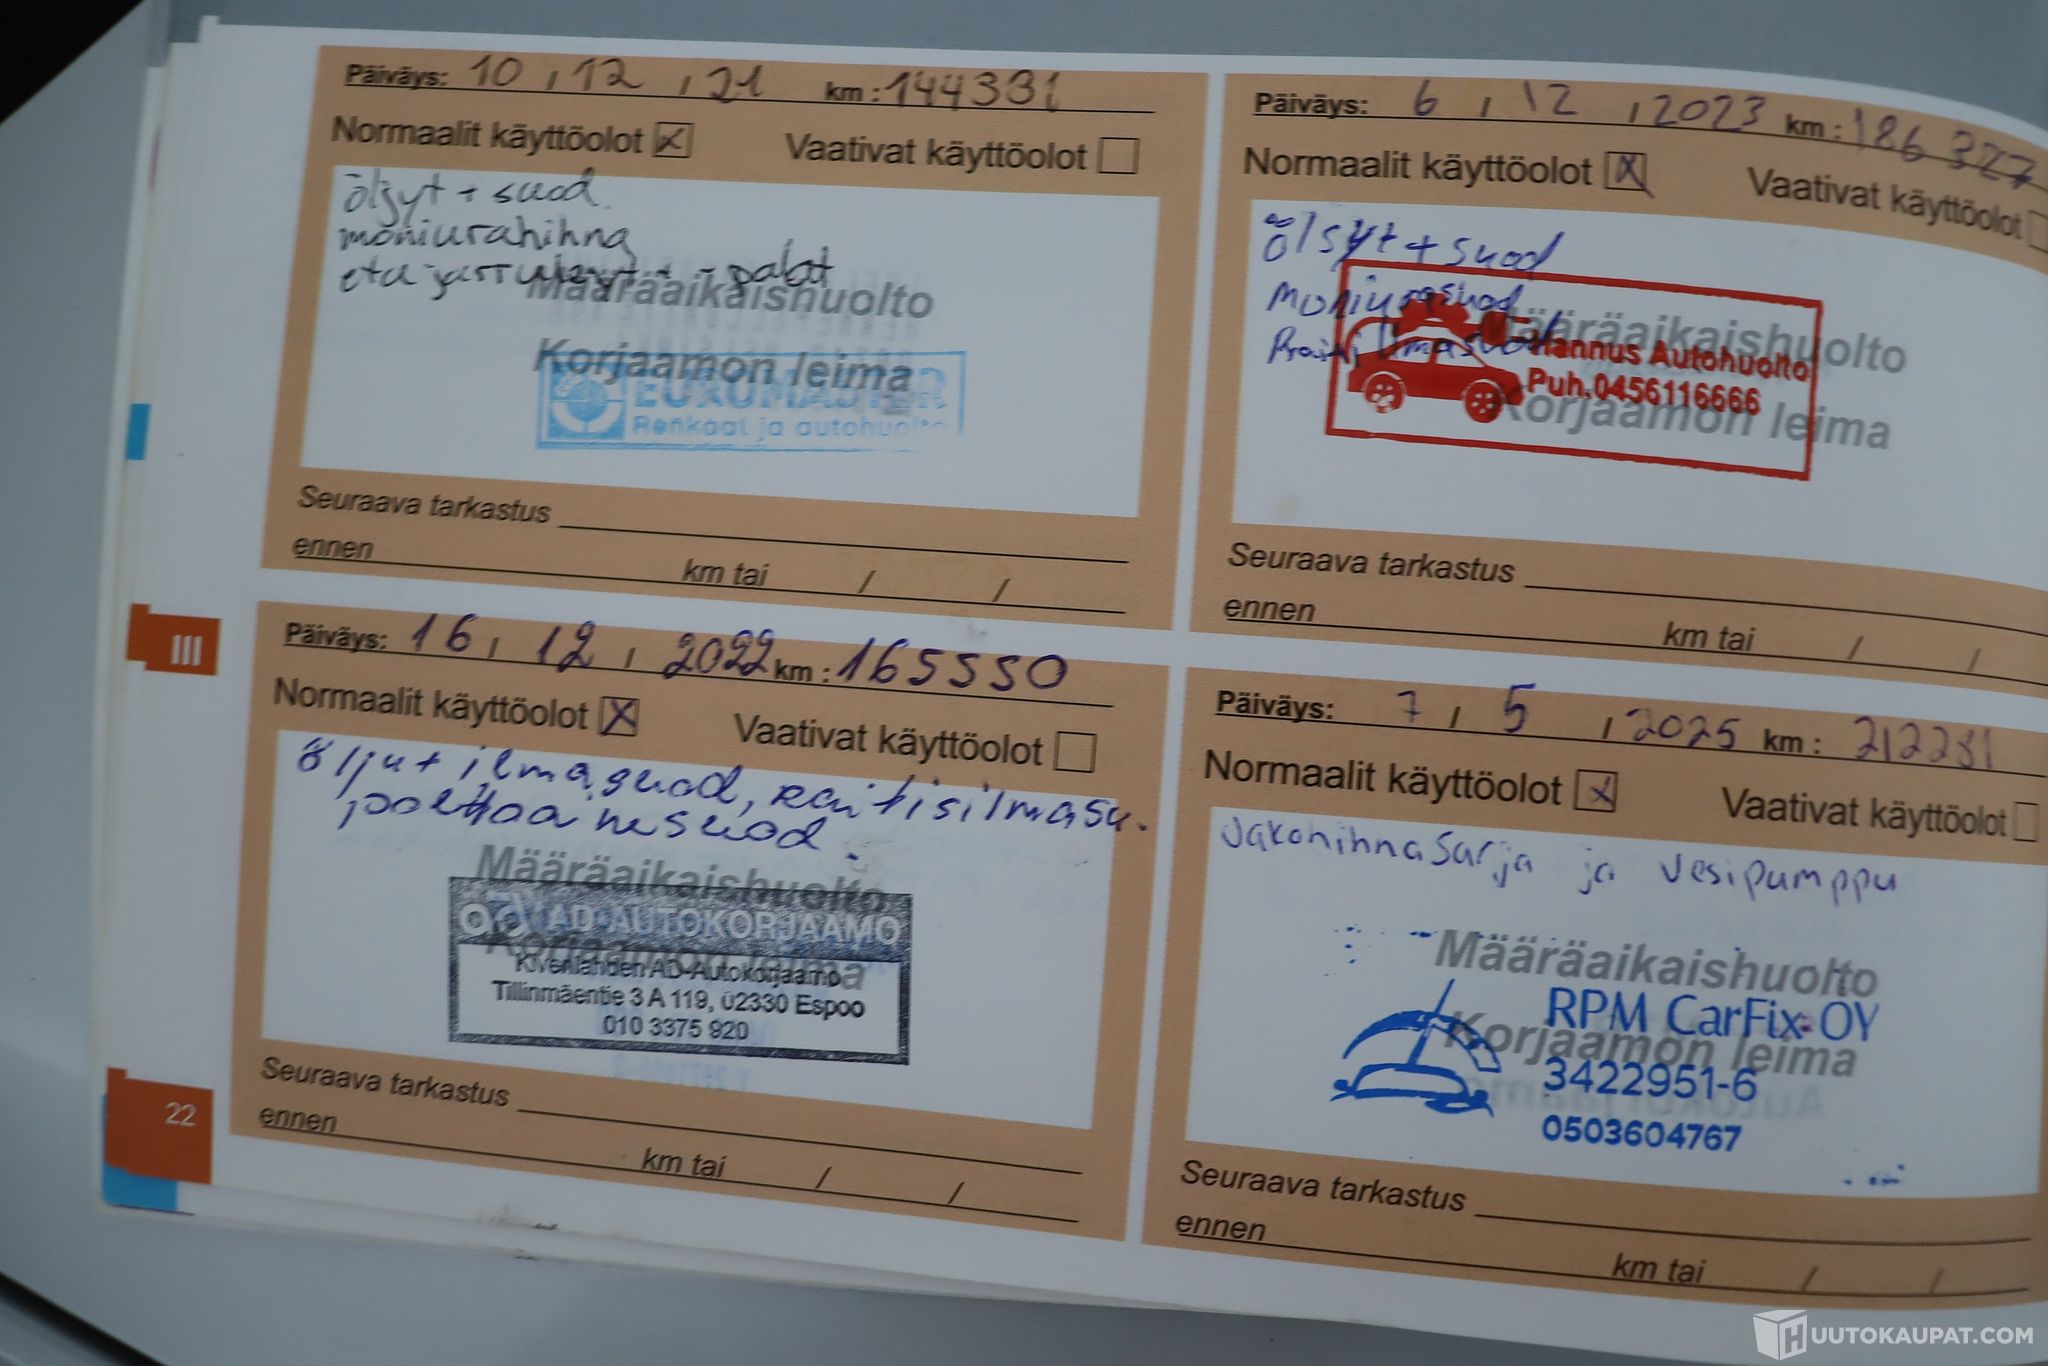 Päiväys: 10 / 12 / 21 km: 144331
Normaalit käyttöolot x Vaativat käyttöolot
öljyt + suod.
moniurahihna
etu jarrulevyt + -palat
Määräaikaishuolto
Korjaamon leima
EUROMASTER
Renkaat ja autohuolto
Seuraava tarkastus
ennen km tai / /
Päiväys: 16 / 12 / 2022 km: 165550
Normaalit käyttöolot x Vaativat käyttöolot
öljyt ilmasuod, raitisilmasu.
polttoainesuod.
Määräaikaishuolto
Korjaamon leima
ad AD-AUTOKORJAAMO
Kivenlahden AD-Autokorjaamo
Tillinmäentie 3 A 119, 02330 Espoo
010 3375 920
Seuraava tarkastus
ennen km tai / /
III
22
Päiväys: 6 / 12 / 2023 km: 186 327
Normaalit käyttöolot x Vaativat käyttöolot
öljyt + suod
Määräaikaishuolto
Korjaamon leima
Hannus Autohuolto
Puh.0456116666
Seuraava tarkastus
ennen km tai / /
Päiväys: 7 / 5 / 2025 km: 212231
Normaalit käyttöolot x Vaativat käyttöolot
Jakohihnasarja ja vesipumppu
Määräaikaishuolto
Korjaamon leima
RPM CarFix OY
3422951-6
0503604767
Seuraava tarkastus
ennen km tai / /
HUUTOKAUPAT.COM